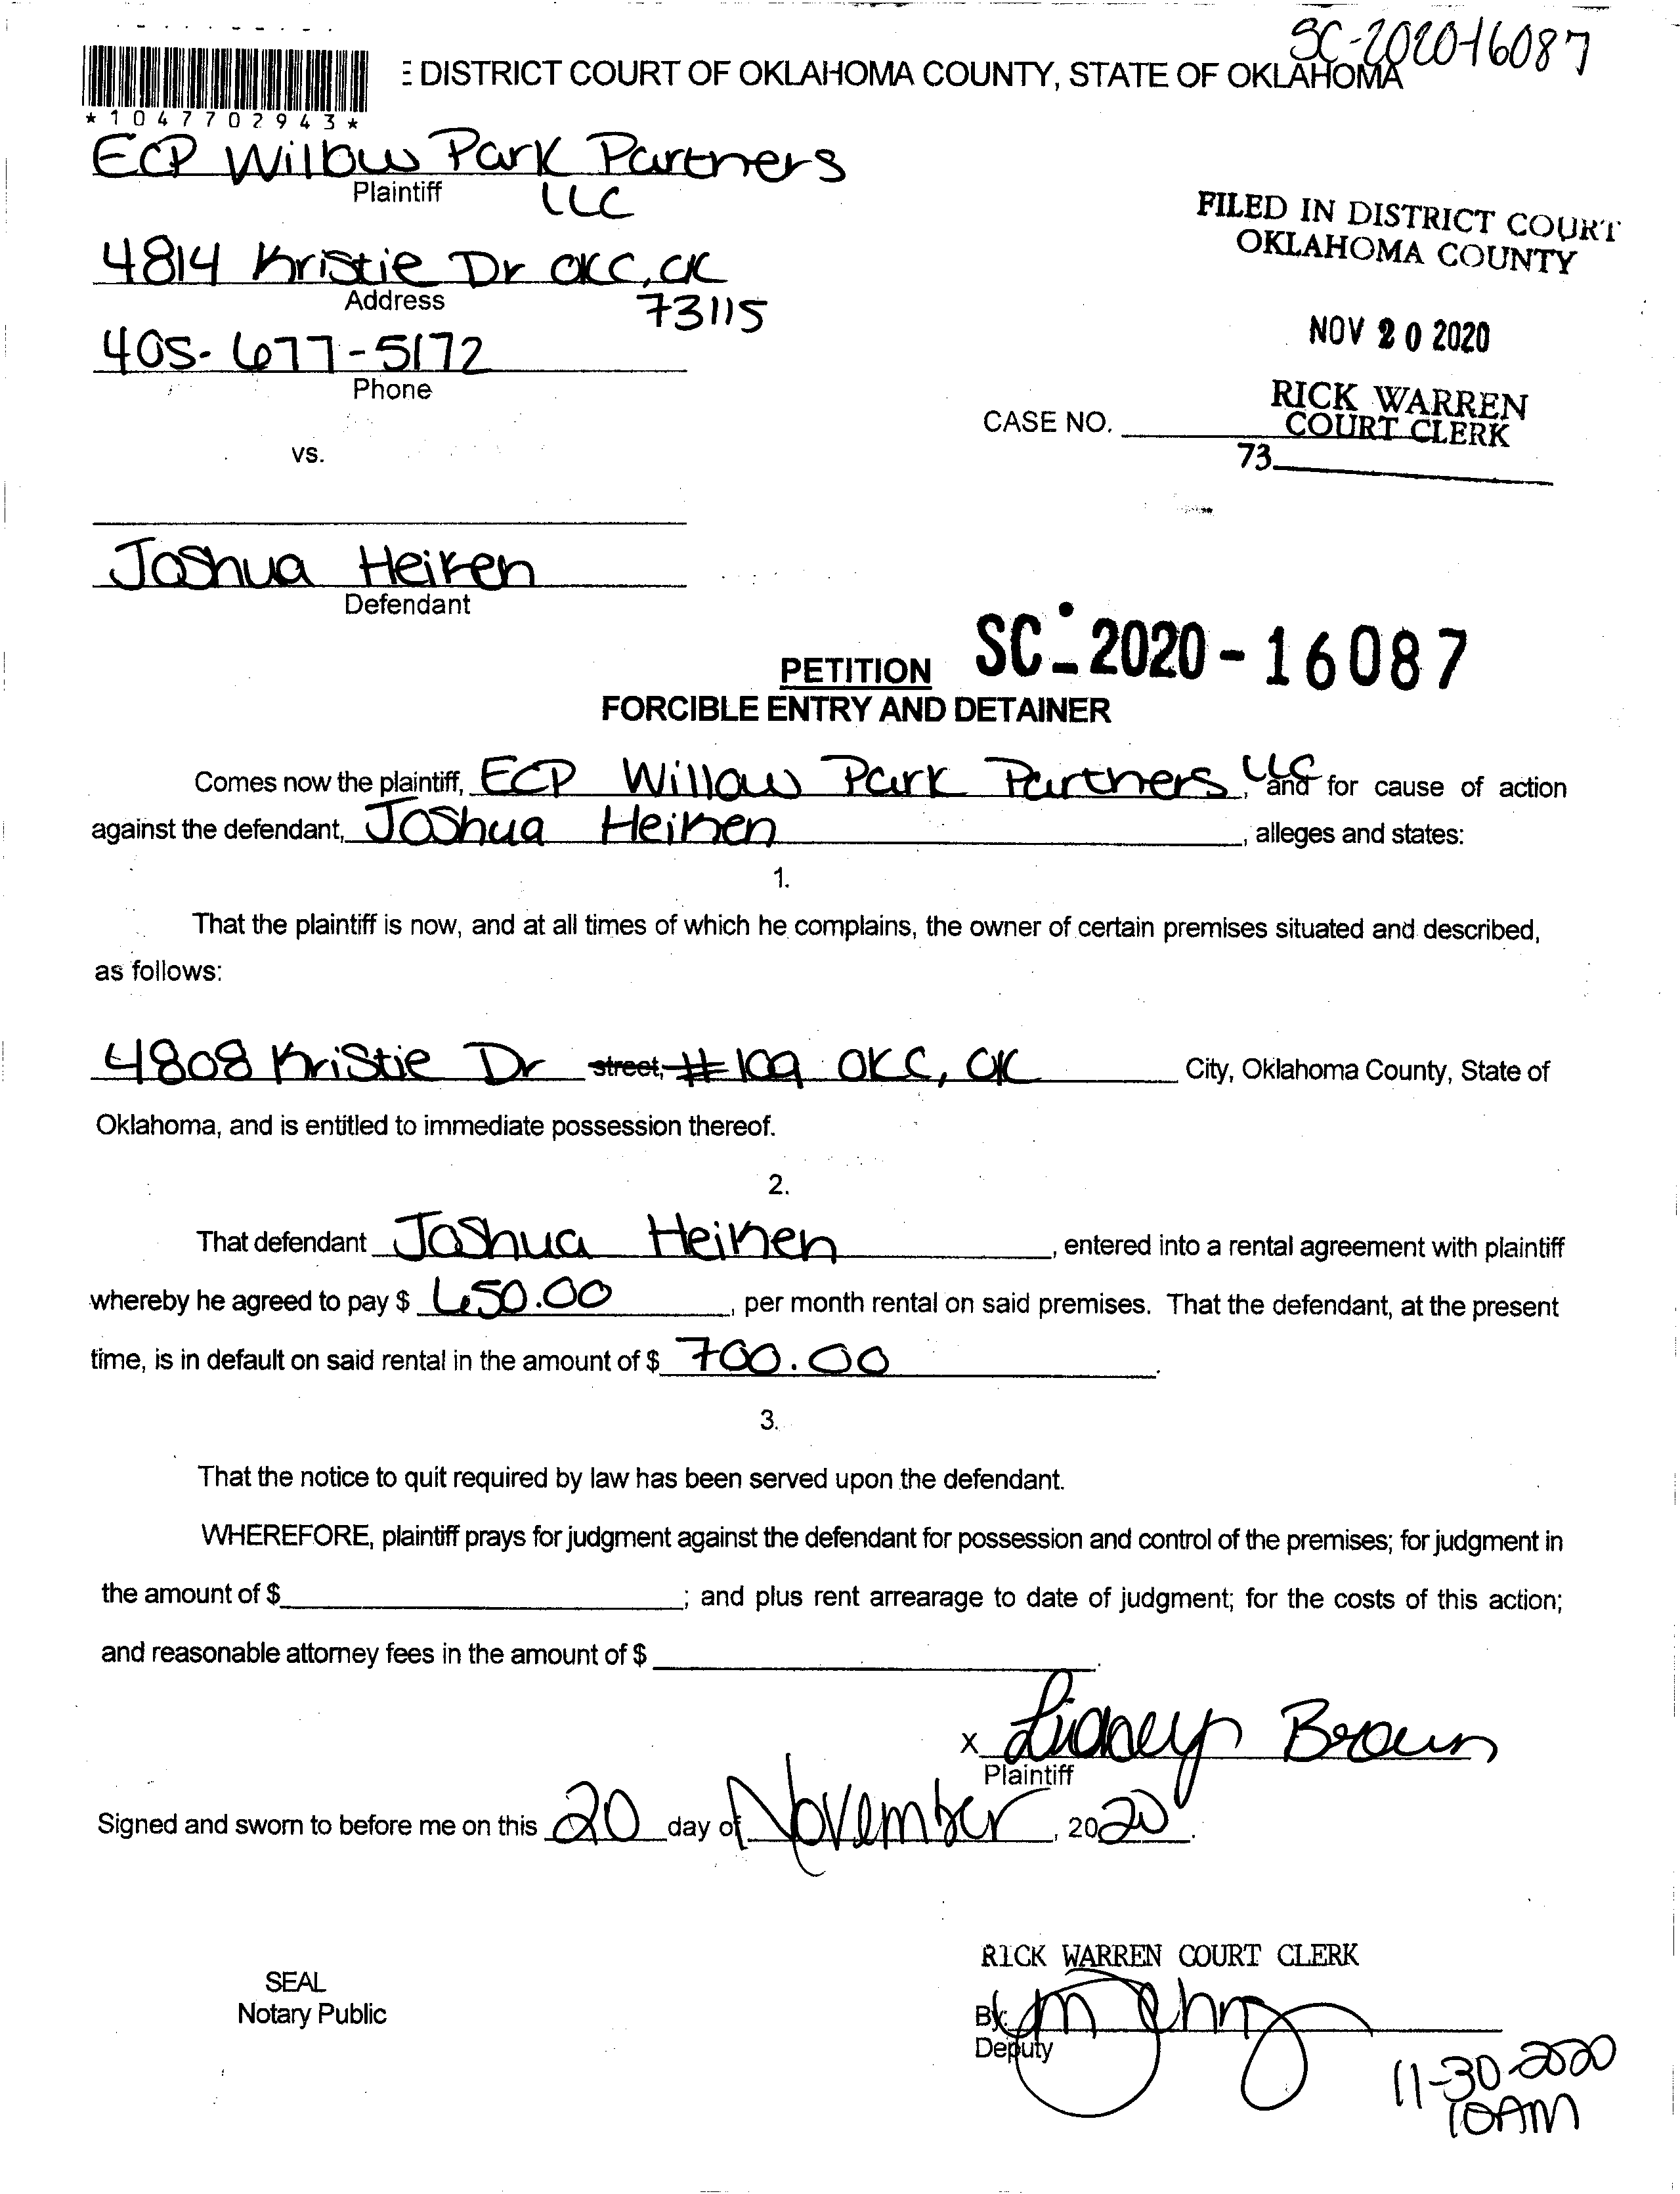 SC-2020-16087
DISTRICT COURT OF OKLAHOMA COUNTY, STATE OF OKLAHOMA
*1047702943*
ECP Willow Park Partners
Plaintiff LLC
FILED IN DISTRICT COURT
OKLAHOMA COUNTY
4814 Kristie Dr OKC, OK
Address 73115
NOV 20 2020
405-677-5172
Phone
RICK WARREN
COURT CLERK
CASE NO.
73
vs.
Joshua Heiken
Defendant
SC-2020-16087
PETITION
FORCIBLE ENTRY AND DETAINER
Comes now the plaintiff, ECP Willow Park Partners, LLC and for cause of action
against the defendant, Joshua Heiken, alleges and states:
1.
That the plaintiff is now, and at all times of which he complains, the owner of certain premises situated and described,
as follows:
4808 Kristie Dr street, #109 OKC, OK City, Oklahoma County, State of
Oklahoma, and is entitled to immediate possession thereof.
2.
That defendant Joshua Heiken, entered into a rental agreement with plaintiff
whereby he agreed to pay $ 650.00, per month rental on said premises. That the defendant, at the present
time, is in default on said rental in the amount of $ 700.00.
3.
That the notice to quit required by law has been served upon the defendant.
WHEREFORE, plaintiff prays for judgment against the defendant for possession and control of the premises; for judgment in
the amount of $ ; and plus rent arrearage to date of judgment; for the costs of this action;
and reasonable attorney fees in the amount of $ .
x Brown
Plaintiff
Signed and sworn to before me on this 20 day of November, 2020.
RICK WARREN COURT CLERK
SEAL
Notary Public
By:
Deputy
11-30-2020
10AM